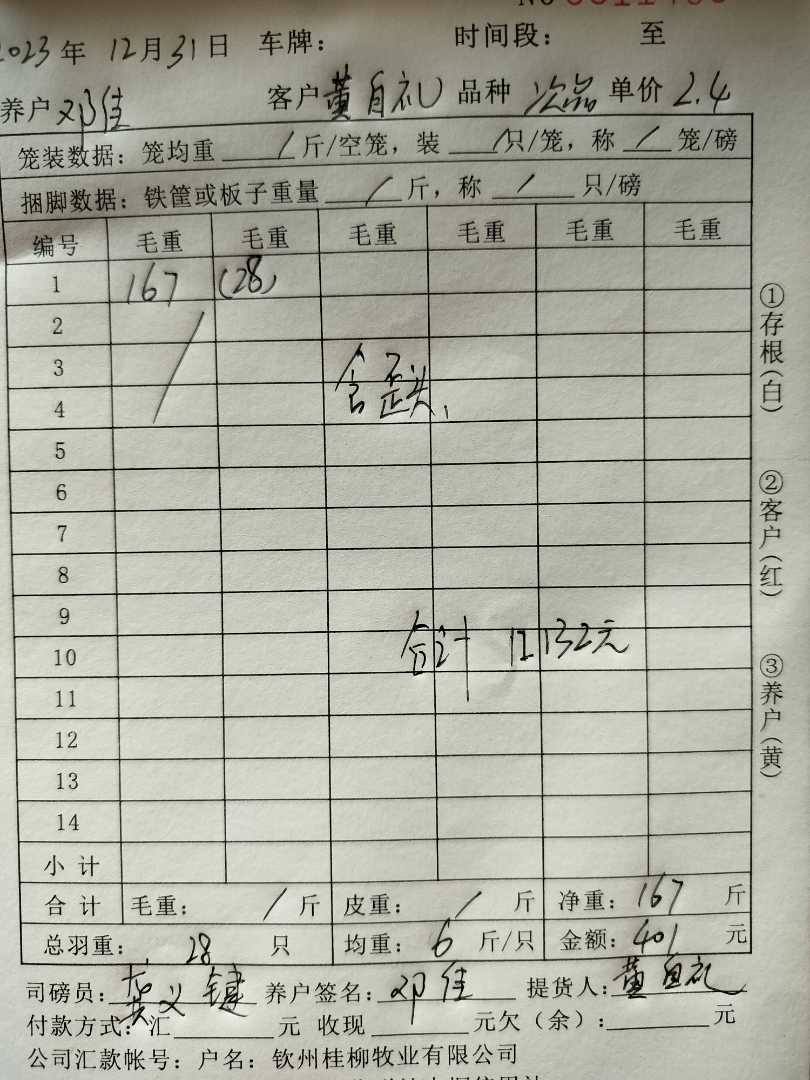 2023年 12月31日 车牌: 时间段: 至
养户 邓佳 客户 黄自礼 品种 次品 单价 2.4
笼装数据: 笼均重 / 斤/空笼, 装 / 只/笼, 称 / 笼/磅
捆脚数据: 铁筐或板子重量 / 斤, 称 / 只/磅
编号 毛重 毛重 毛重 毛重 毛重 毛重
1 167 (28)
2
3
含歪头
4
5
6
7
8
9
合计 12132元
10
11
12
13
14
小计
合计 毛重: / 斤 皮重: / 斤 净重: 167 斤
总羽重: 28 只 均重: 6 斤/只 金额: 401 元
司磅员: 义键 养户签名: 邓佳 提货人: 黄自礼
付款方式: 汇 元 收现 元欠(余): 元
公司汇款帐号: 户名: 钦州桂柳牧业有限公司
①存根(白)
②客户(红)
③养户(黄)